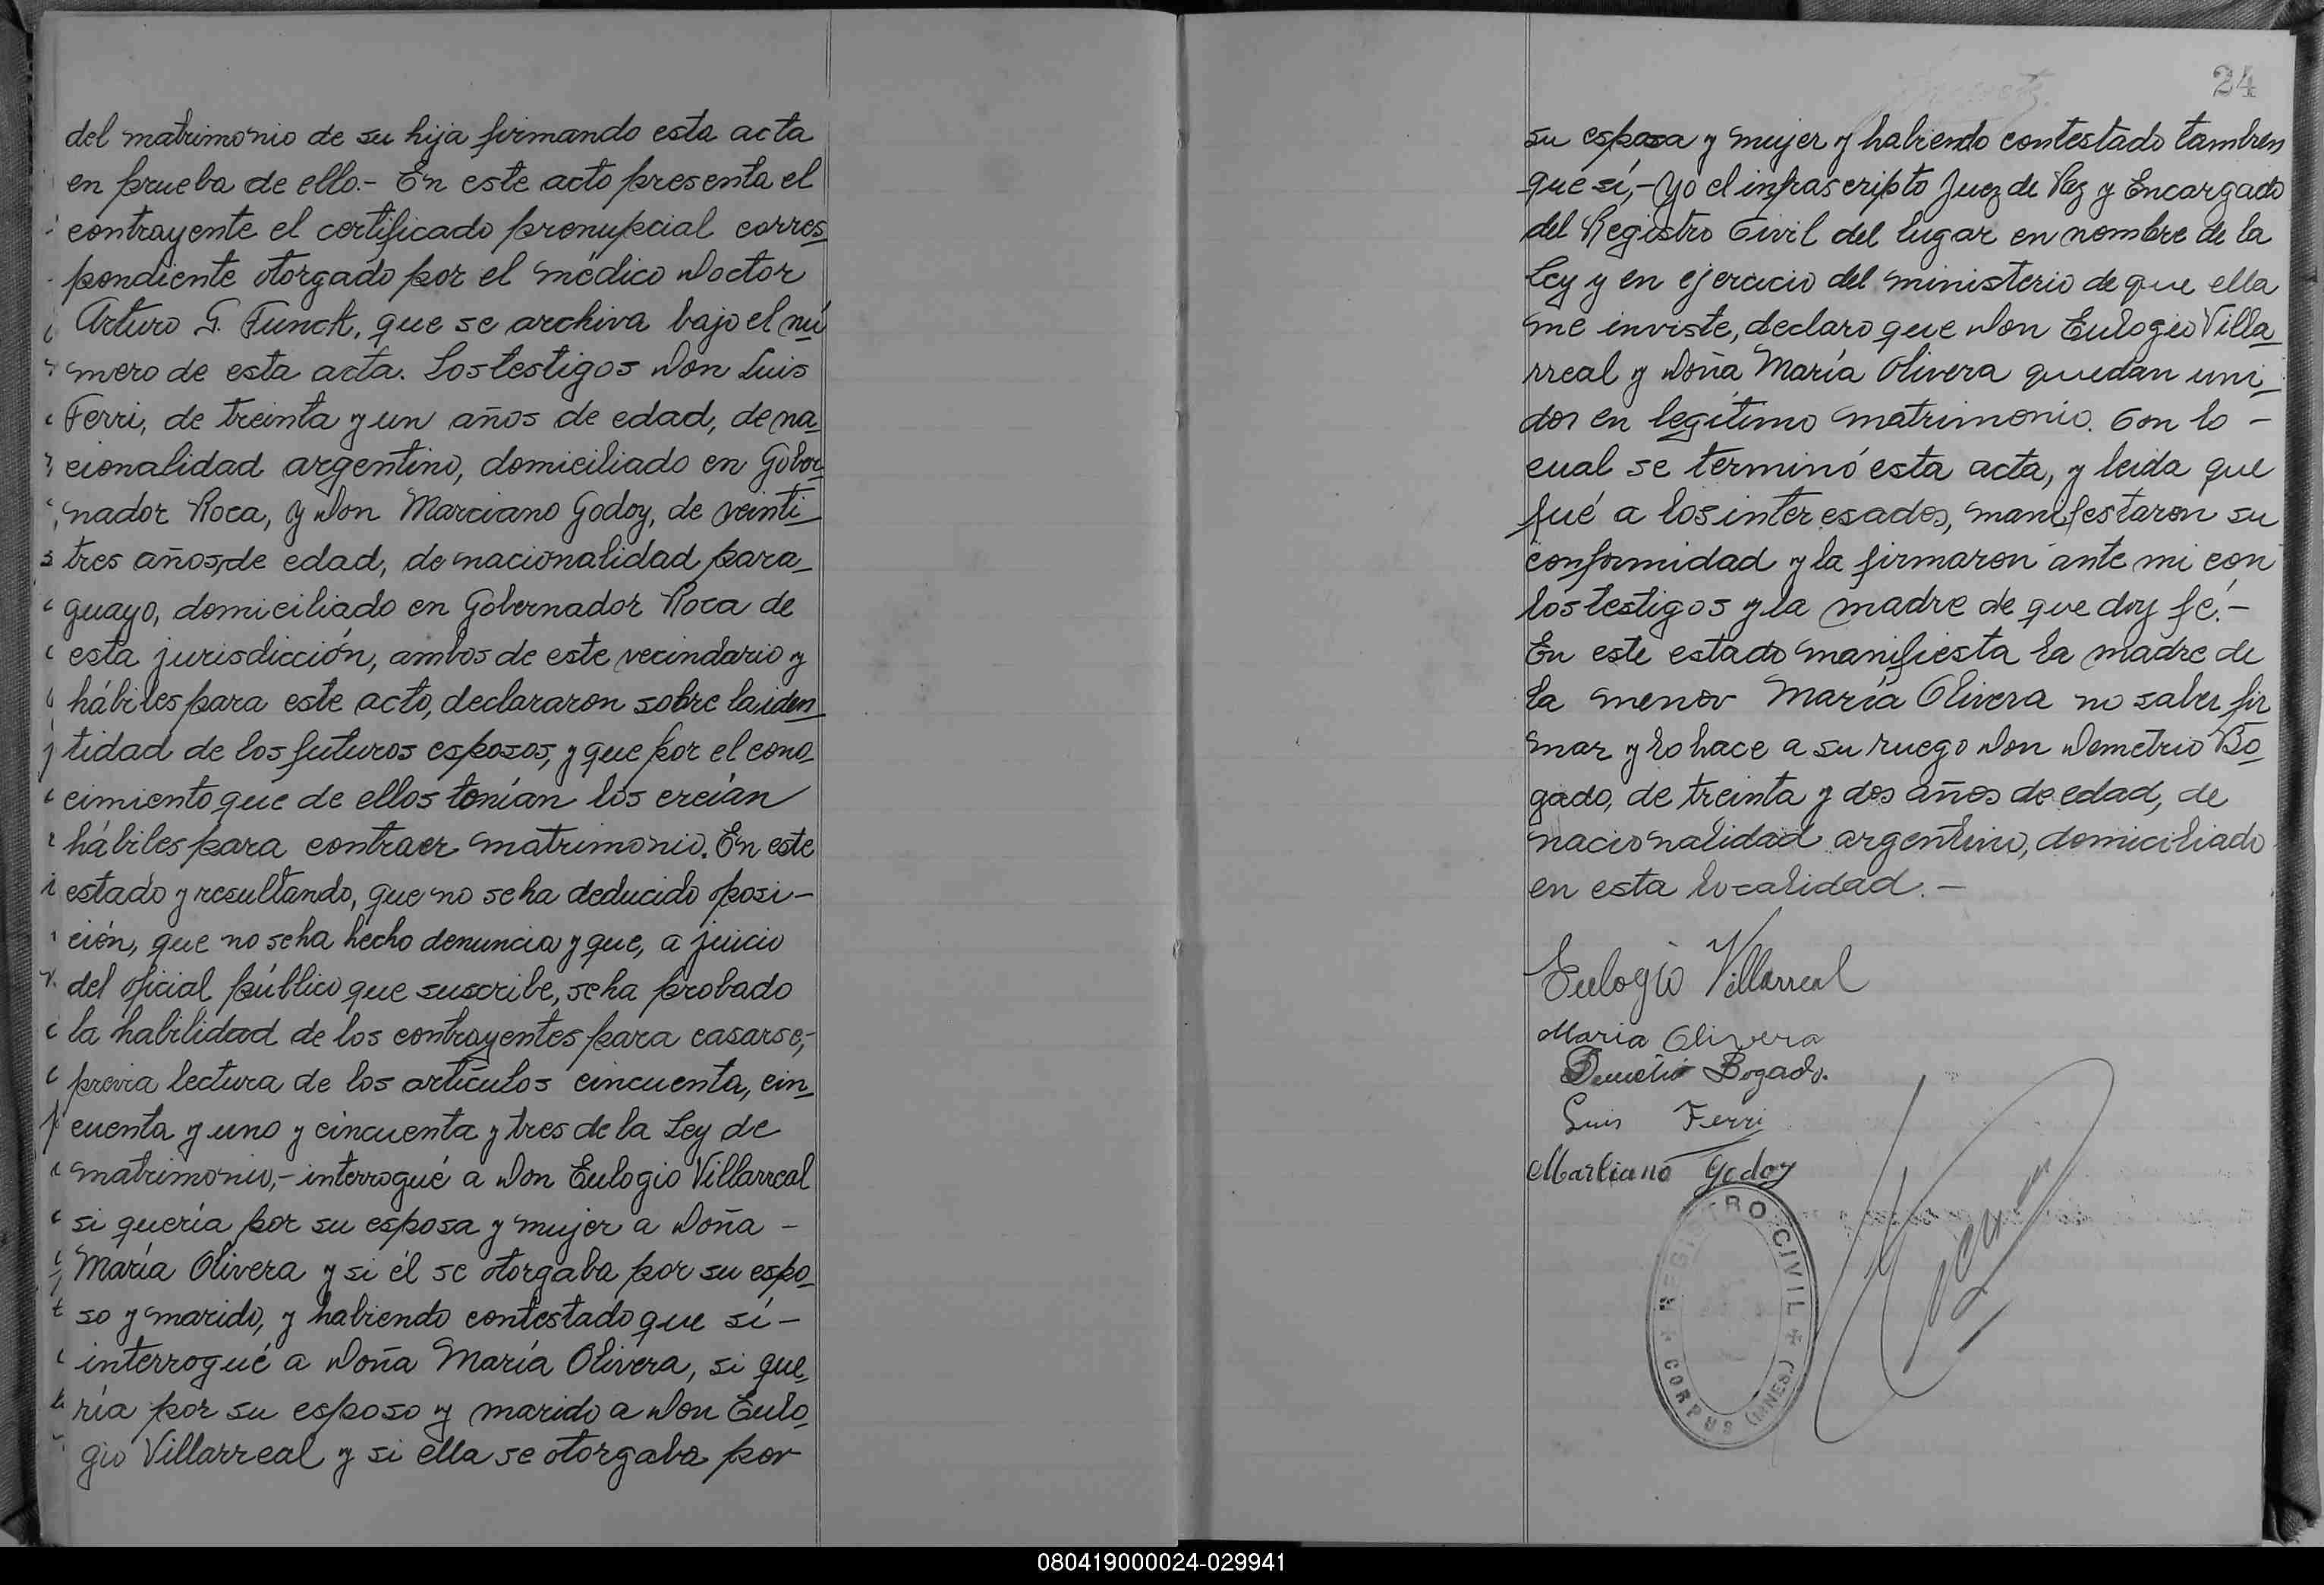 del matrimonio de su hija firmando esta acta
en prueba de ello.- En este acto presenta el
contrayente el certificado prenupcial corres_
pondiente otorgado por el médico Doctor
Arturo G. Funck, que se archiva bajo el nú
mero de esta acta. Los testigos Don Luis
Ferri, de treinta y un años de edad, de na_
cionalidad argentino, domiciliado en Gober_
nador Roca, y Don Marciano Godoy, de veinti_
tres años, de edad, de nacionalidad para_
guayo, domiciliado en Gobernador Roca de
esta jurisdicción, ambos de este vecindario y
hábiles para este acto, declararon sobre la iden_
tidad de los futuros esposos, y que por el cono_
cimiento que de ellos tenían los creían
hábiles para contraer matrimonio. En este
estado y resultando, que no se ha deducido oposi-
ción, que no se ha hecho denuncia y que, a juicio
del oficial público que suscribe, se ha probado
la habilidad de los contrayentes para casarse,-
previa lectura de los artículos cincuenta, cin_
cuenta y uno y cincuenta y tres de la Ley de
matrimonio,- interrogué a Don Eulogio Villarreal
si quería por su esposa y mujer a Doña -
María Olivera y si él se otorgaba por su espo_
so y marido, y habiendo contestado que sí -
interrogué a Doña María Olivera, si que_
ría por su esposo y marido a Don Eulo_
gio Villarreal y si ella se otorgaba por
24
su esposa y mujer y habiendo contestado tambien
que sí,- Yo el infrascripto Juez de Paz y Encargado
del Registro Civil del lugar en nombre de la
Ley y en ejercicio del ministerio de que ella
me inviste, declaro que Don Eulogio Villa_
rreal y Doña María Olivera quedan uni_
dos en legítimo matrimonio. Con lo -
cual se terminó esta acta, y leída que
fué a los interesados, manifestaron su
conformidad y la firmaron ante mi con
los testigos y la madre de que doy fé.-
En este estado manifiesta la madre de
la menor María Olivera no saber fir
mar y lo hace a su ruego Don Demetrio Bo_
gado, de treinta y dos años de edad, de
nacionalidad argentino, domiciliado
en esta localidad.-
Eulogio Villarreal
Maria Olivera
Demetrio Bogado.
Luis Ferri
Marciano Godoy
REGISTRO CIVIL
CORPUS (MNES.)
080419000024-029941